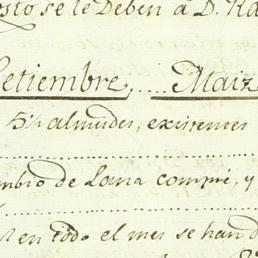 esto se le Deben à D. Ra
Setiembre,... Maiz
5½ almudes, existentes
mbio de Lona compré, y
en todo el mes se han d